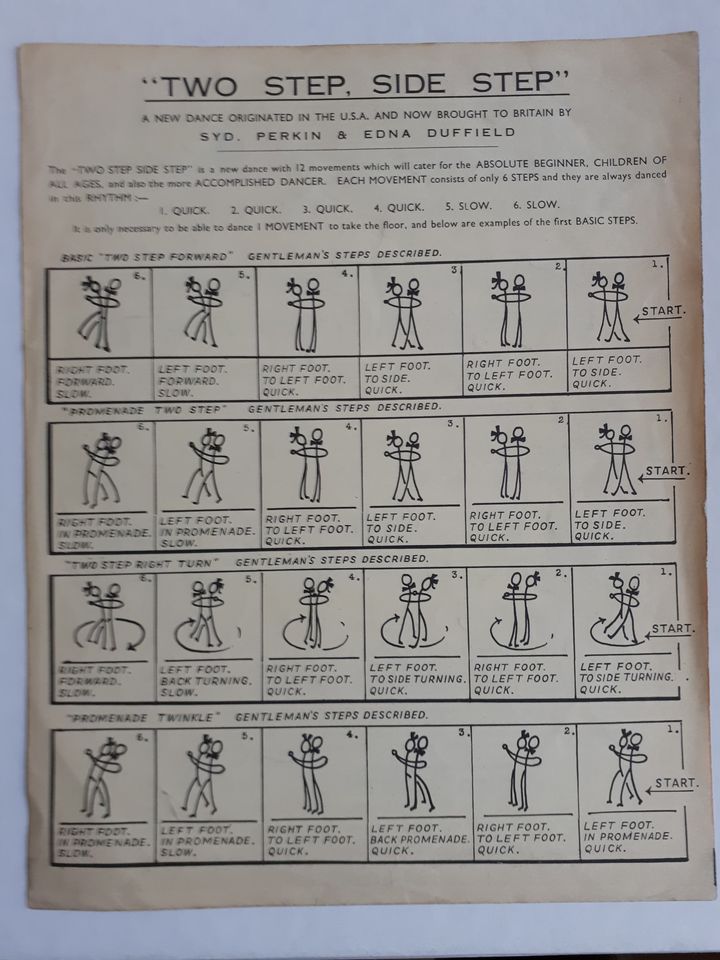 "TWO STEP, SIDE STEP"
A NEW DANCE ORIGINATED IN THE U.S.A. AND NOW BROUGHT TO BRITAIN BY
SYD. PERKIN & EDNA DUFFIELD
The "TWO STEP SIDE STEP" is a new dance with 12 movements which will cater for the ABSOLUTE BEGINNER, CHILDREN OF
ALL AGES, and also the more ACCOMPLISHED DANCER. EACH MOVEMENT consists of only 6 STEPS and they are always danced
in this RHYTHM :—
1. QUICK. 2. QUICK. 3. QUICK. 4. QUICK. 5. SLOW. 6. SLOW.
It is only necessary to be able to dance 1 MOVEMENT to take the floor, and below are examples of the first BASIC STEPS.
BASIC "TWO STEP FORWARD" GENTLEMAN'S STEPS DESCRIBED.
6. 5. 4. 3. 2. 1.
START.
RIGHT FOOT. LEFT FOOT. RIGHT FOOT. LEFT FOOT. RIGHT FOOT. LEFT FOOT.
FORWARD. FORWARD. TO LEFT FOOT. TO SIDE. TO LEFT FOOT. TO SIDE.
SLOW. SLOW. QUICK. QUICK. QUICK. QUICK.
"PROMENADE TWO STEP" GENTLEMAN'S STEPS DESCRIBED.
6. 5. 4. 3. 2. 1.
START.
RIGHT FOOT. LEFT FOOT. RIGHT FOOT. LEFT FOOT. RIGHT FOOT. LEFT FOOT.
IN PROMENADE. IN PROMENADE. TO LEFT FOOT. TO SIDE. TO LEFT FOOT. TO SIDE.
SLOW. SLOW. QUICK. QUICK. QUICK. QUICK.
"TWO STEP RIGHT TURN" GENTLEMAN'S STEPS DESCRIBED.
6. 5. 4. 3. 2. 1.
START.
RIGHT FOOT. LEFT FOOT. RIGHT FOOT. LEFT FOOT. RIGHT FOOT. LEFT FOOT.
FORWARD. BACK TURNING. TO LEFT FOOT. TO SIDE TURNING. TO LEFT FOOT. TO SIDE TURNING.
SLOW. SLOW. QUICK. QUICK. QUICK. QUICK.
"PROMENADE TWINKLE" GENTLEMAN'S STEPS DESCRIBED.
6. 5. 4. 3. 2. 1.
START.
RIGHT FOOT. LEFT FOOT. RIGHT FOOT. LEFT FOOT. RIGHT FOOT. LEFT FOOT.
IN PROMENADE. IN PROMENADE. TO LEFT FOOT. BACK PROMENADE. TO LEFT FOOT. IN PROMENADE.
SLOW. SLOW. QUICK. QUICK. QUICK. QUICK.